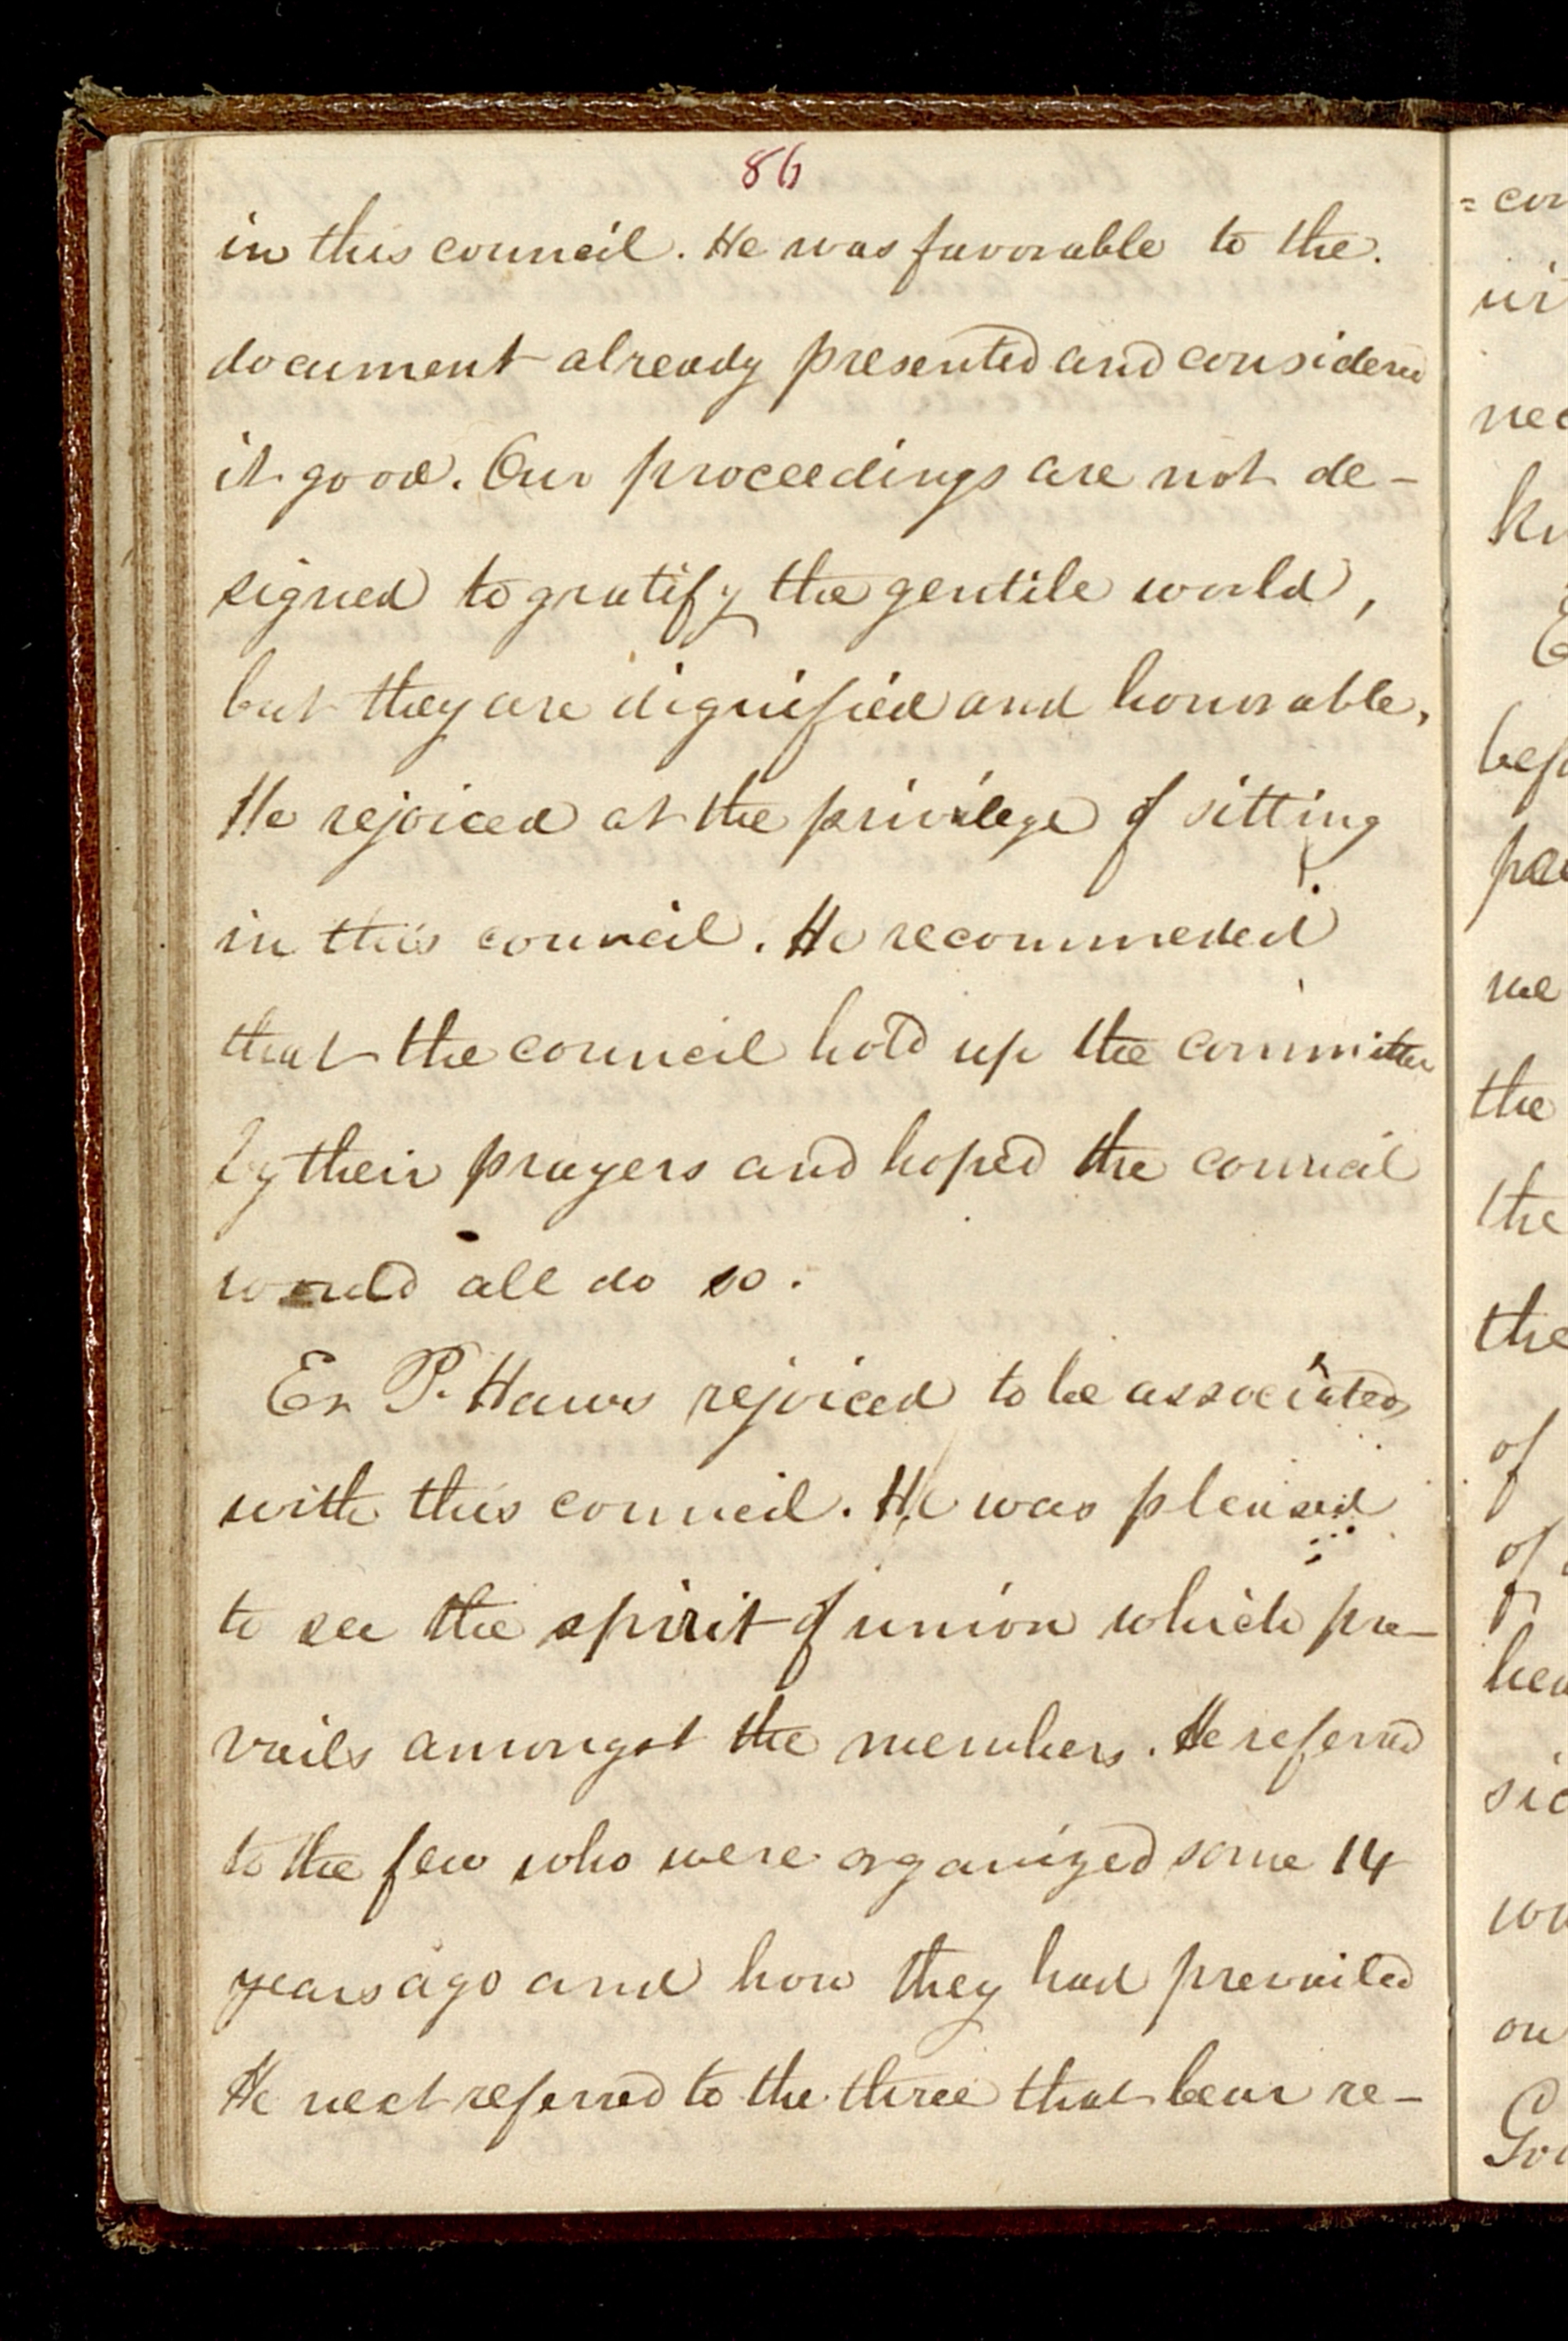 86
in this council. He was favorable to the
document already presented and considered
it good. Our proceedings are not de-
signed to gratify the gentile world,
but they are dignified and honorable,
He rejoiced at the privilege of sitting
in this council. He recommeded
that the council hold up the committee
by their prayers and hoped the council
would all do so.
Er P. Haws rejoiced to be associated
with this council. He was pleased
to see the spirit of union which pre-
vails amongst the members. He referred
to the few who were organized some 14
years ago and how they had prevailed
He next referred to the three that bear re-
= con
wi
nec
kn
E
bef
pa
me
the
the
the
of
of
hea
sid
wo
on
God